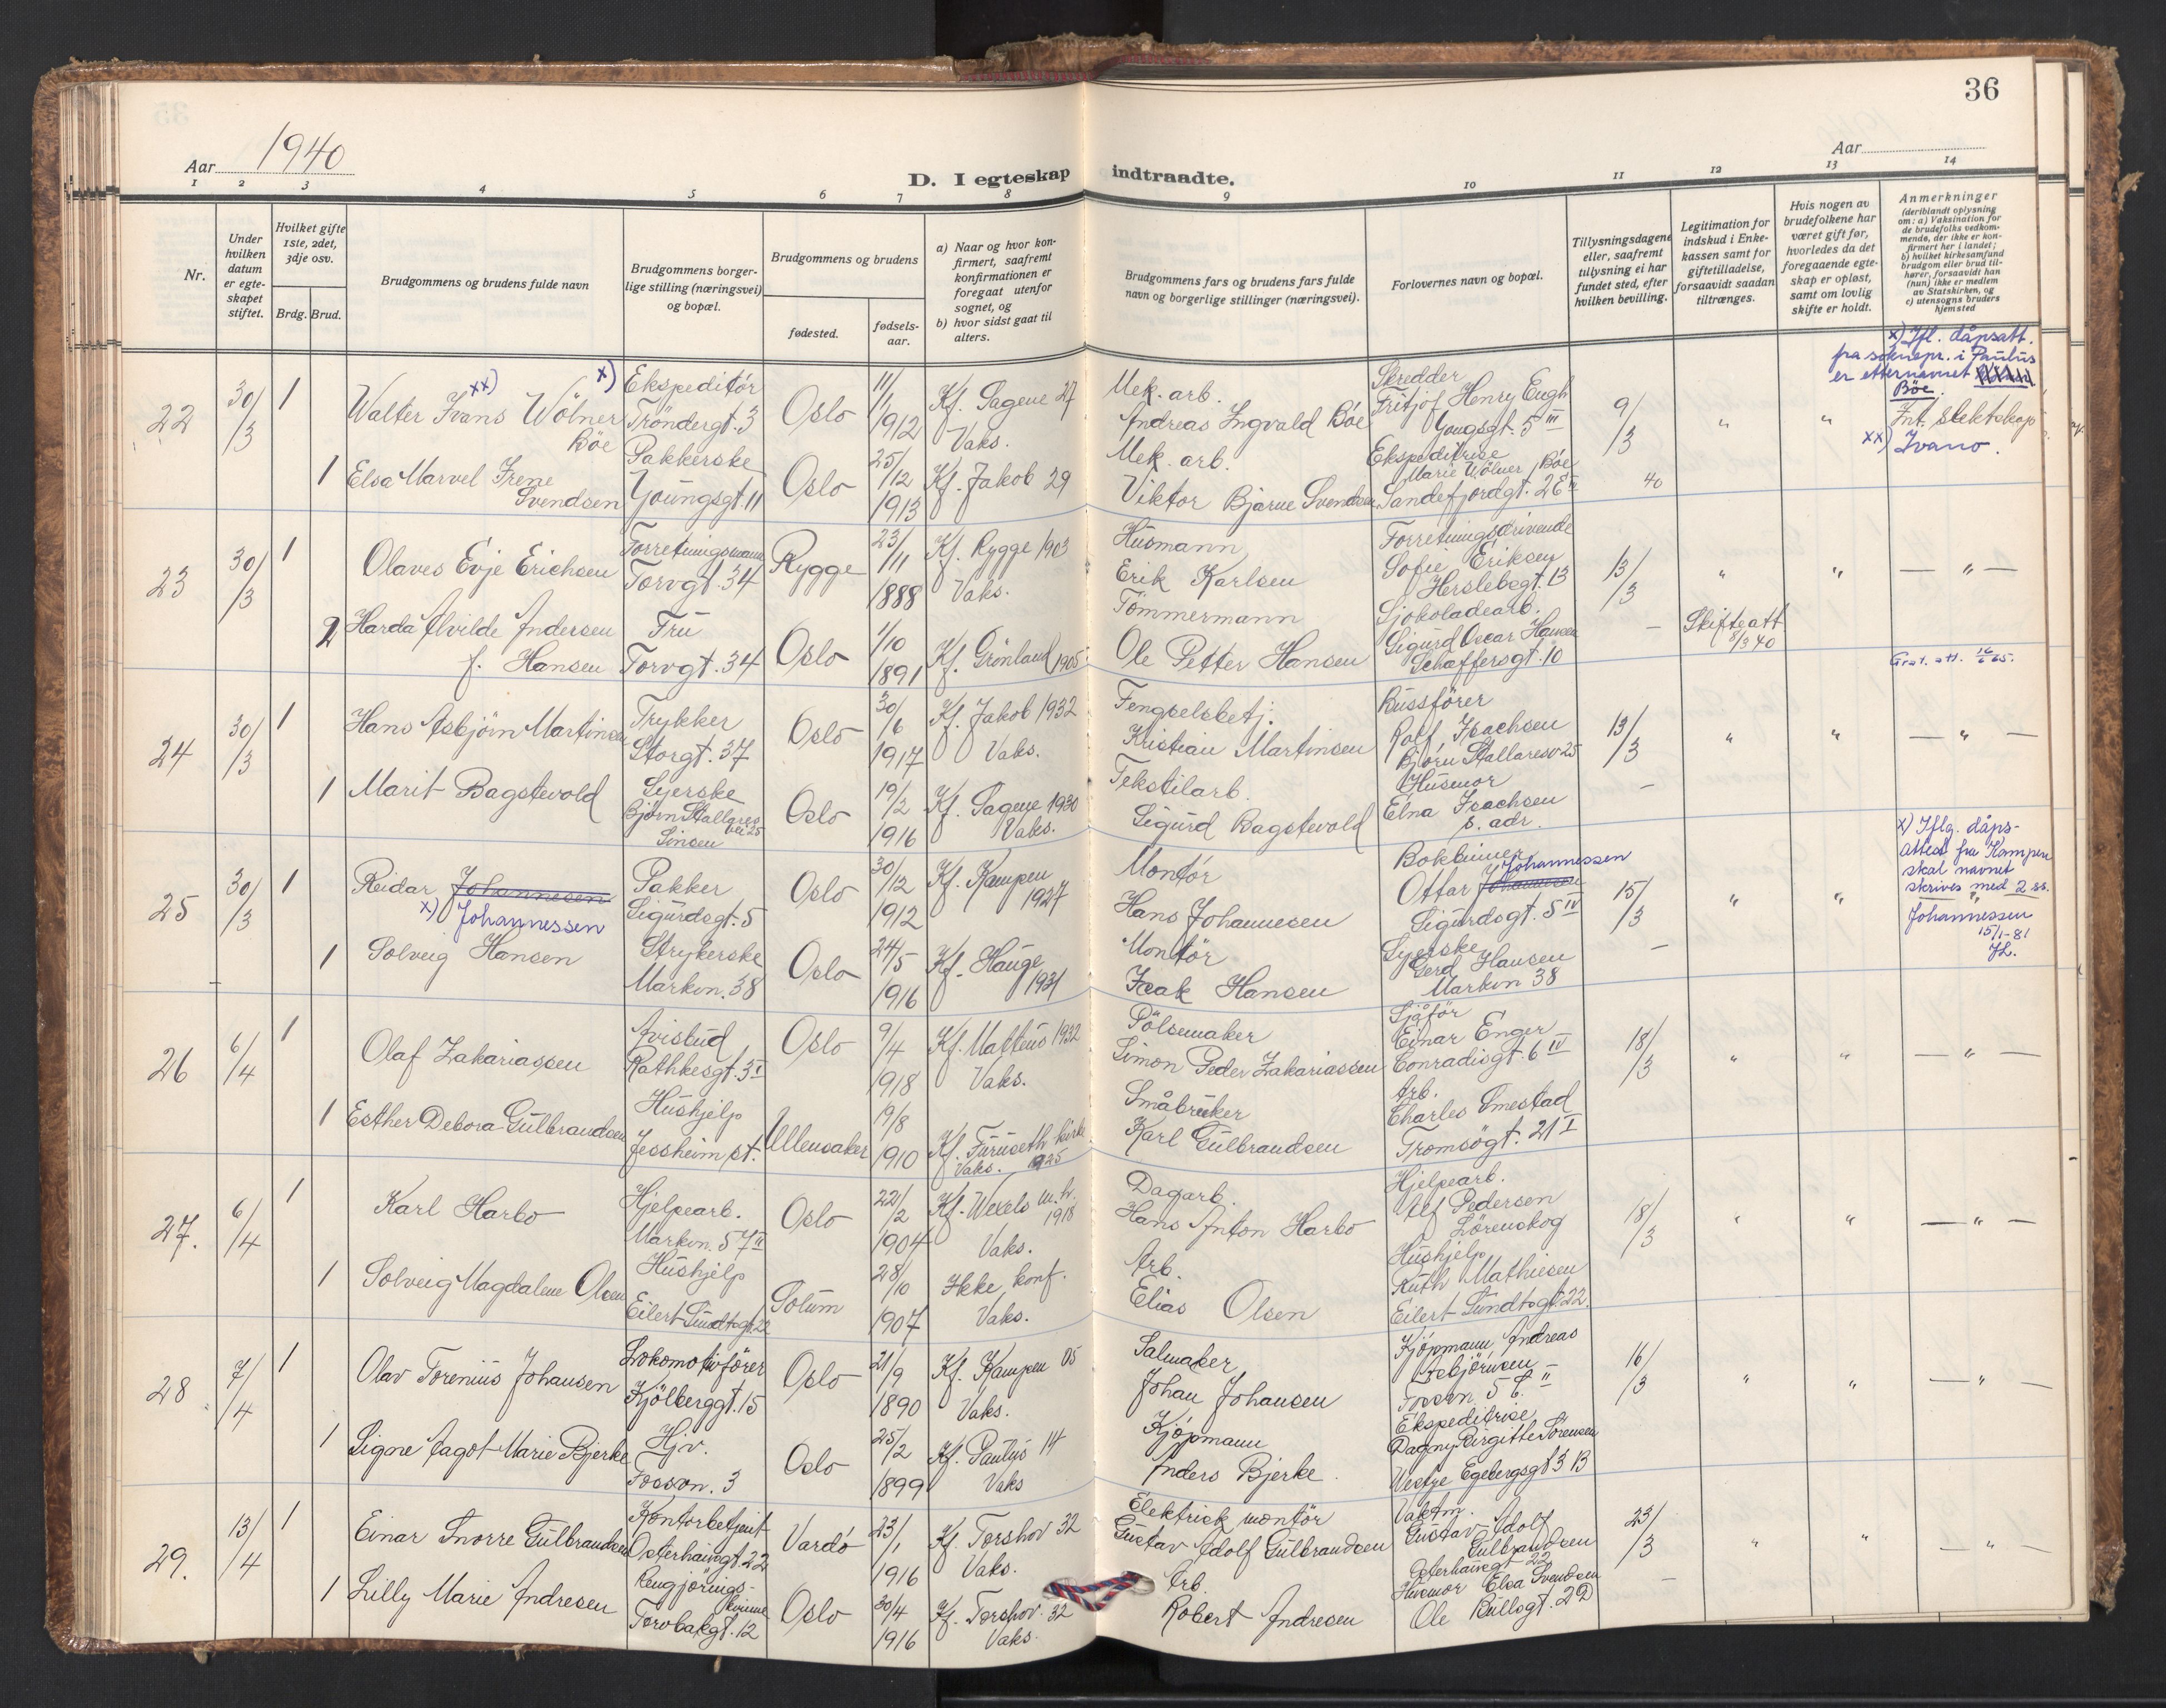 36
Aar 1940
Aar
D. I egteskap indtraadte.
1 2 3 4 5 6 7 8 9 10 11 12 13 14
Nr.
Under hvilken datum er egte-skapet stiftet.
Hvilket gifte 1ste, 2det, 3dje osv.
Brdg. Brud.
Brudgommens og brudens fulde navn
Brudgommens borger-lige stilling (næringsvei) og bopæl.
Brudgommens og brudens
fødested.
fødsels-aar.
a) Naar og hvor kon-firmert, saafremt konfirmationen er foregaat utenfor sognet, og
b) hvor sidst gaat til alters.
Brudgommens fars og brudens fars fulde navn og borgerlige stillinger (næringsvei).
Forlovernes navn og bopæl.
Tillysningsdagene eller, saafremt tillysning ei har fundet sted, efter hvilken bevilling.
Legitimation for indskud i Enke-kassen samt for giftetilladelse, forsaavidt saadan tiltrænges.
Hvis nogen av brudefolkene har været gift før, hvorledes da det foregaaende egte-skap er opløst, samt om lovlig skifte er holdt.
Anmerkninger
(deriblandt oplysning om: a) Vaksination for de brudefolks vedkom-mende, der ikke er kon-firmert her i landet; b) hvilket kirkesamfund brudgom eller brud til-hører, forsaavidt han (hun) ikke er medlem av Statskirken, og c) utensogns bruders hjemsted
22 30/3 1 Walter Ivans xx) Wölner x) Böe
Ekspeditör Tröndergt. 3
Oslo 11/1 1912
Kf. Sagene 27 Vaks.
Mek. arb. Andreas Ingvald Böe
Skredder Fritjof Henry Engh Youngsgt. 5 III
9/3 " "
x) Ifl. dåpsatt. fra soknepr. i Paulus er etternavnet Böe.
Int. slektskap
xx) Ivano.
1 Elsa Marvel Irene Svendsen
Pakkerske Youngsgt. 11
Oslo 25/12 1913
Kf. Jakob 29
Mek. arb. Viktor Bjarne Svendsen
Ekspeditrise Marie Wölner Böe Sandefjordgt. 2E IV
40
23 30/3 1 Olaves Evje Erichsen
Forretningsmann Torvgt. 34
Rygge 23/11 1888
Kf. Rygge 1903 Vaks.
Husmann Erik Karlsen
Forretningsdrivende Sofie Eriksen Herslebsgt. 13
13/3 " " — " —
2 Harda Alvilde Andersen f. Hansen
Fru Torvgt. 34
Oslo 1/10 1891
Kf. Grönland 1905
Tömmermann Ole Petter Hansen
Sjokoladearb. Sigurd Oscar Hansen Schaffersgt. 10
— Skifteatt 8/3 40
Grat. att. 16/6 65.
24 30/3 1 Hans Asbjörn Martinsen
Trykker Storgt. 37
Oslo 30/6 1917
Kf. Jakob 1932 Vaks.
Fengselsbetj. Kristian Martinsen
Bussförer Rolf Isachsen Björn Stallaresv 25
13/3 " " — " —
1 Marit Bagstevold
Syerske Björn Stallares vei 25 Sinsen
Oslo 19/2 1916
Kf. Sagene 1930 Vaks.
Tekstilarb. Sigurd Bagstevold
Husmor Elna Isachsen s. adr.
—
25 30/3 1 Reidar Johannesen x) Johannessen
Pakker Sigurdsgt. 5
Oslo 30/12 1912
Kf. Kampen 1927
Montör Hans Johannesen
Bokbinner Ottar Johannesen Johannessen Sigurdsgt. 5 IV
15/3 " "
x) Iflg. dåps-attest fra Kampen skal navnet skrives med 2 ss. Johannessen 15/1-81
1 Solveig Hansen
Strykerske Markvn. 38
Oslo 24/5 1916
Kf. Hauge 1931
Montör Isak Hansen
Syerske Gerd Hansen Markvn 38
—
26 6/4 1 Olaf Zakariassen
Avisbud Rathkesgt. 3 I
Oslo 9/4 1918
Kf. Matteus 1932 Vaks.
Pölsemaker Simon Peder Zakariassen
Sjåför Einar Enger Conradisgt. 6 IV
18/3 " " — " —
1 Esther Debora Gulbrandsen
Hushjelp Jessheim st.
Ullensaker 19/8 1910
Kf. Furuseth kirke Vaks. 1925
Småbruker Karl Gulbrandsen
Arb. Charles Smestad Tromsögt. 21 I
27. 6/4 1 Karl Harbo
Hjelpearb. Markvn. 57 IV
Oslo 22/2 1904
Kf. Wexels m.h. 1918 Vaks.
Dagarb. Hans Anton Harbo
Hjelpearb. Alf Pedersen Lörenskog
18/3 " " — " —
1 Solveig Magdalene Olsen
Hushjelp Eilert Sundtsgt. 22
Solum 28/10 1907
Ikke konf. Vaks.
Arb. Elias Olsen
Hushjelp Ruth Mathiesen Eilert Sundtsgt. 22.
28 7/4 1 Olav Torenius Johansen
Lokomotivförer Kjölberggt. 15
Oslo 21/9 1890
Kf. Kampen 05 Vaks.
Salmaker Johan Johansen
Kjöpmann Andreas Asbjörnsen Fossvn. 5 II
16/3 " " — " —
1 Signe Aagot Marie Bjerke
Hjv. Fossvn. 3
Oslo 25/2 1899
Kf. Paulus 14 Vaks
Kjöpmann Anders Bjerke
Ekspeditrise Dagny Birgitte Sörensen Westye Egebergsgt 3 B
29. 13/4 1 Einar Snorre Gulbrandsen
Kontorbetjent Osterhausgt. 22
Vardö 23/1 1916
Kf. Torshov 32 Vaks.
Elektrisk montör Gustav Adolf Gulbrandsen
Vaktm. Gustav Adolf Gulbrandsen Osterhausgt 22
23/3 " " — " —
1 Lilly Marie Andresen
Rengjörings-kvinne Torvbakgt. 12
Oslo 30/4 1916
Kf. Torshov 32 Vaks.
Arb. Robert Andresen
Husmor Elsa Svendsen Ole Bullsgt. 22
—